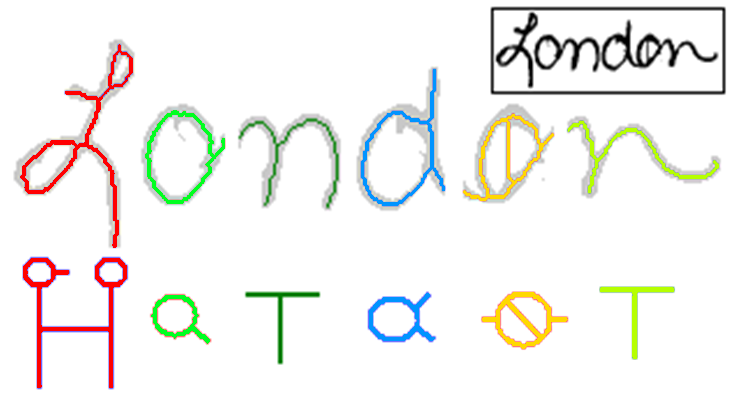 London
London